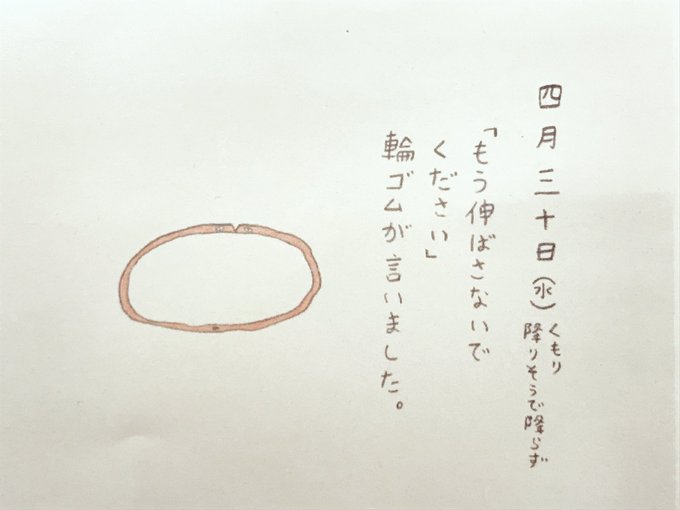 四月三十日(水)くもり
降りそうで降らず
「もう伸ばさないで
ください」
輪ゴムが言いました。